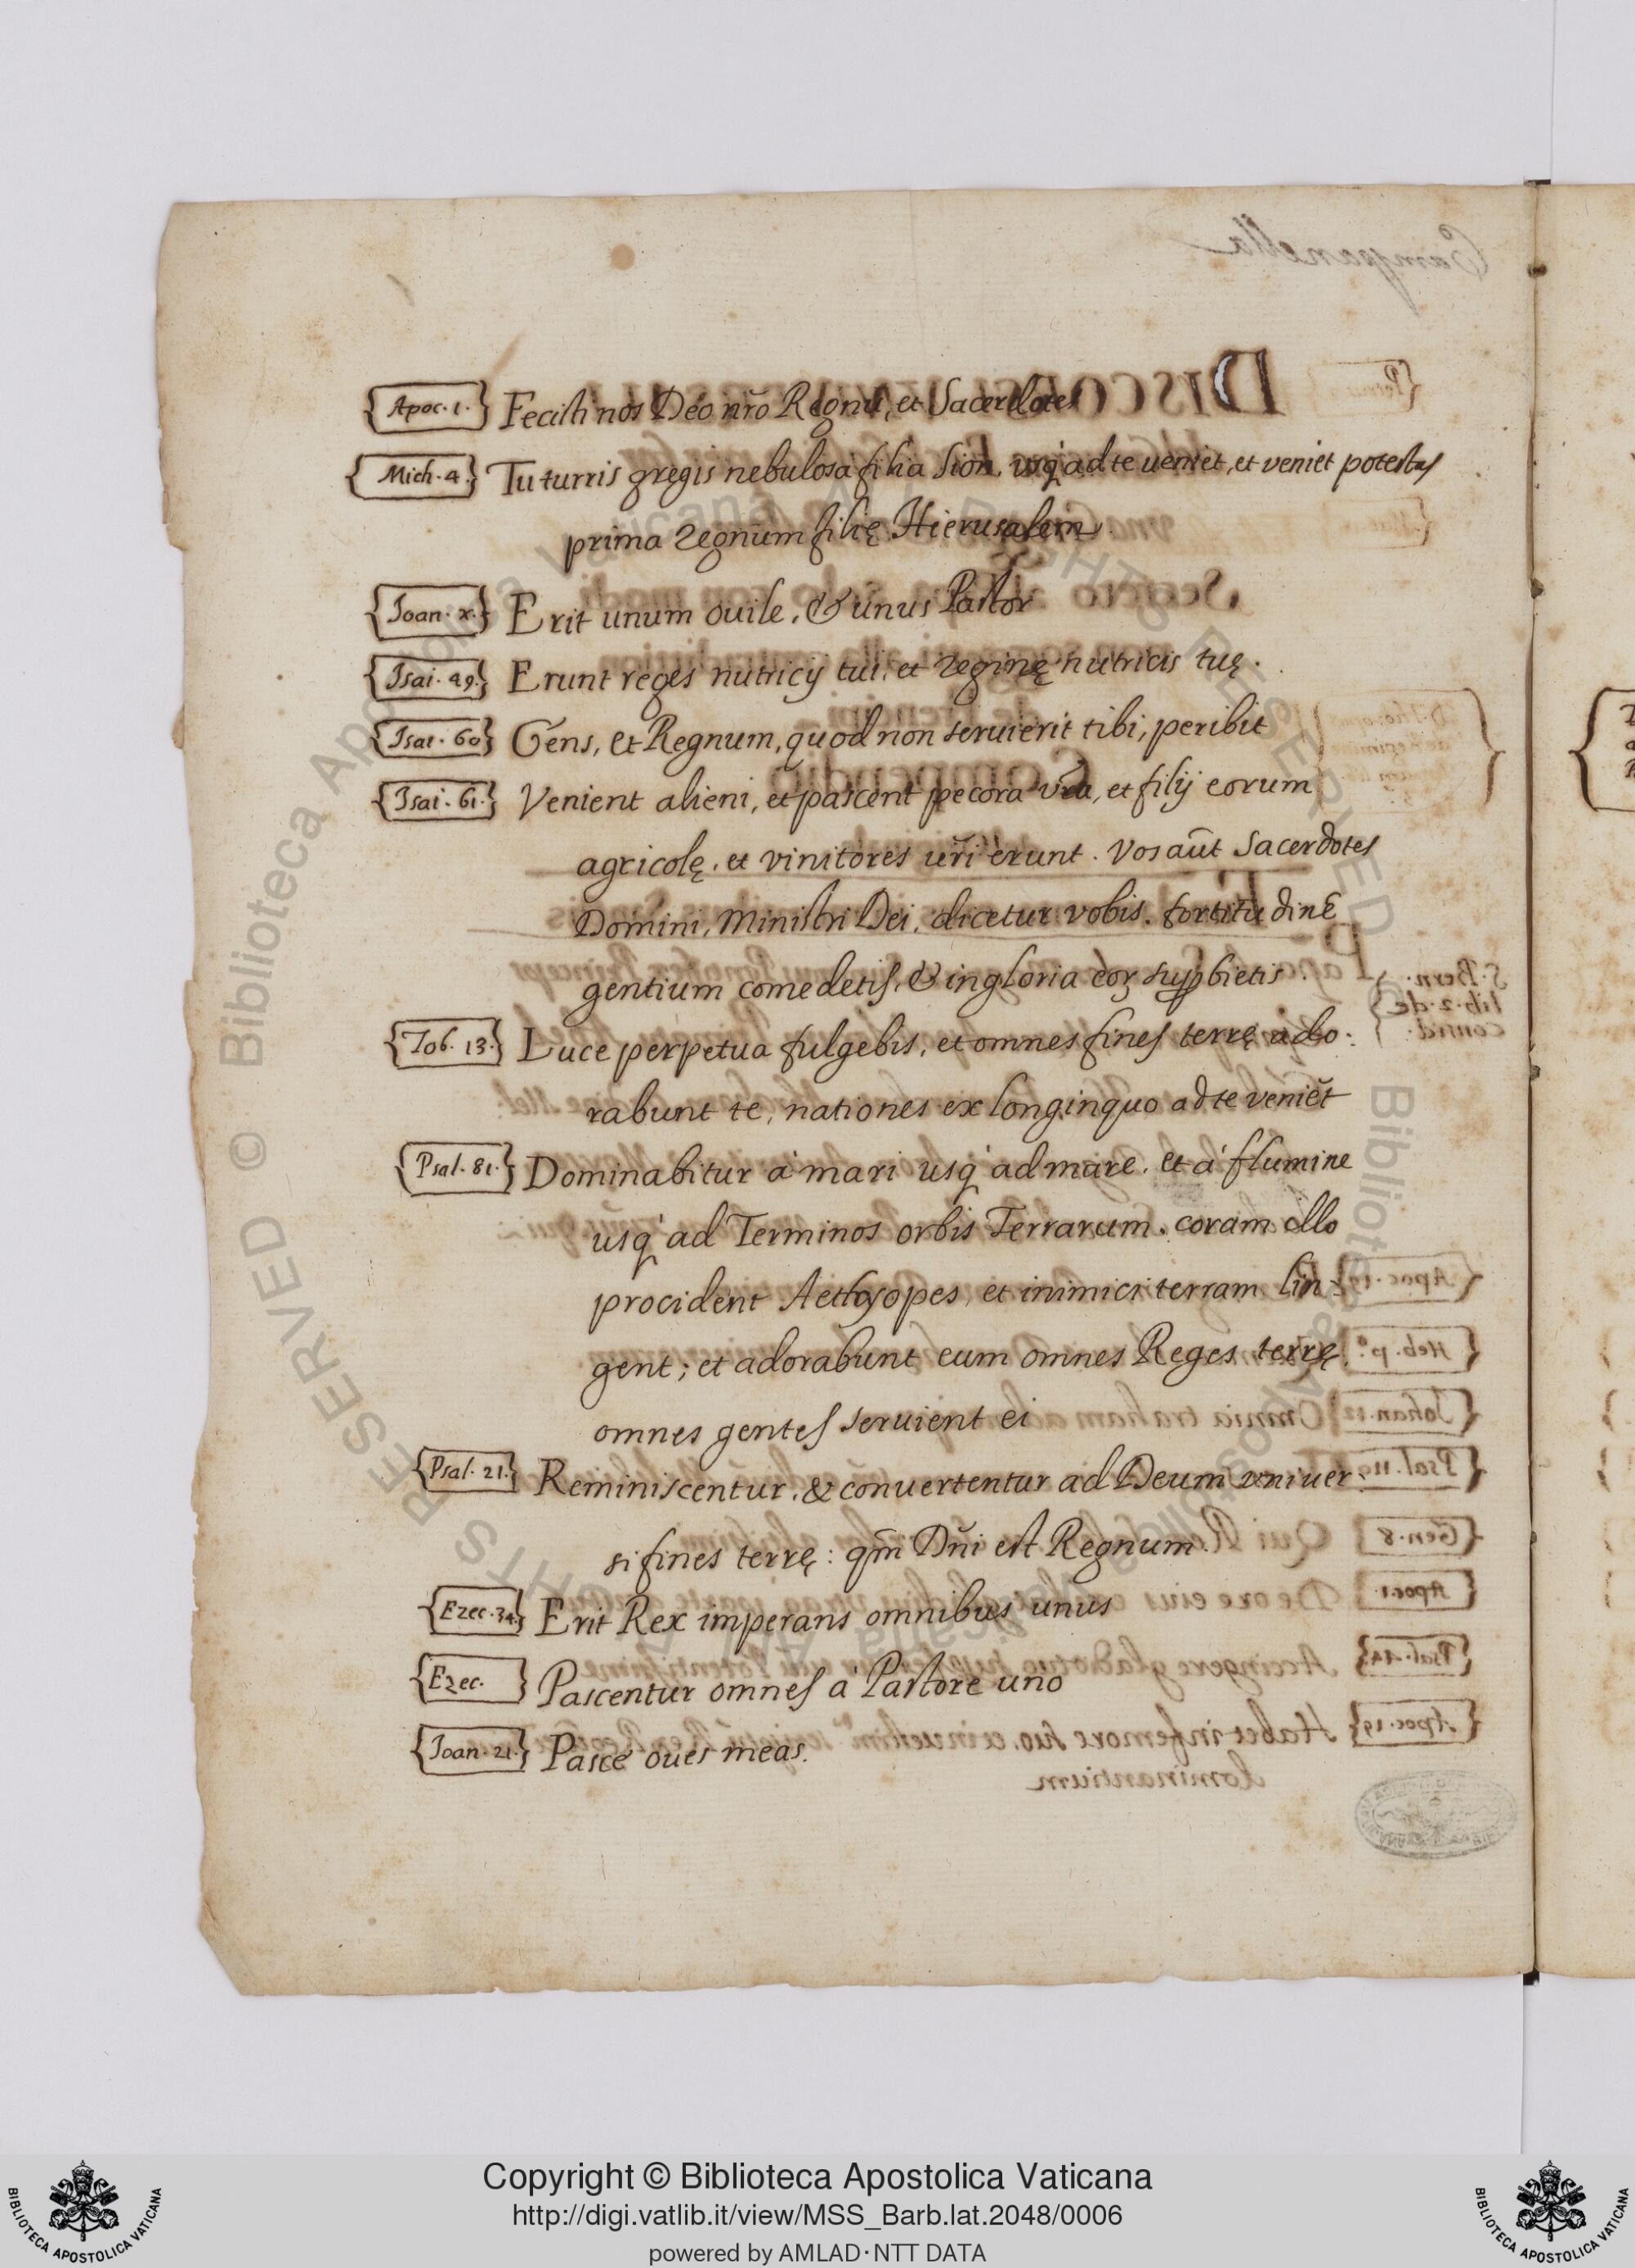 Apoc. 1. Fecisti nos Deo nr̃o Regnũ, et Sacerdotes
Mich. 4. Tu turris gregis nebulosa filia Sion, usq̃ ad te veniet, et veniet potestas
prima regnum filię Hierusalem
Joan. x. Erit unum ouile, & unus Pastor
Isai. 49. Erunt reges nutricij tui, et reginę nutricis tuę.
Isai. 60 Gens, et Regnum, quod non seruierit tibi, peribit
Isai. 61. Venient alieni, et pascent pecora vr̃a, et filij eorum
agricolę, et vinitores ur̃i erunt. Vos aũt Sacerdotes
Domini, Ministri Dei, dicetur vobis. fortitudinẽ
gentium comedetis, & in gloria eoꝝ suꝑbietis.
Tob. 13. Luce perpetua fulgebis, et omnes fines terrę ado:
rabunt te, nationes ex longinquo ad te veniẽt
Psal. 81. Dominabitur à mari usq̃ ad mare, et à flumine
usq̃ ad Terminos orbis Terrarum. coram illo
procident Aethyopes, et inimici terram lin:
gent; et adorabunt eum omnes Reges terrę,
omnes gentes seruient ei
Psal. 21. Reminiscentur, & conuertentur ad Deum vniuer:
si fines terrę: qm̃ Dñi est Regnum.
Ezec. 34. Erit Rex imperans omnibus unus
Ezec. Pascentur omnes à Pastore uno
Joan. 21. Pasce oues meas.
Copyright © Biblioteca Apostolica Vaticana
http://digi.vatlib.it/view/MSS_Barb.lat.2048/0006
powered by AMLAD·NTT DATA
BIBLIOTECA APOSTOLICA VATICANA
BIBLIOTECA APOSTOLICA VATICANA